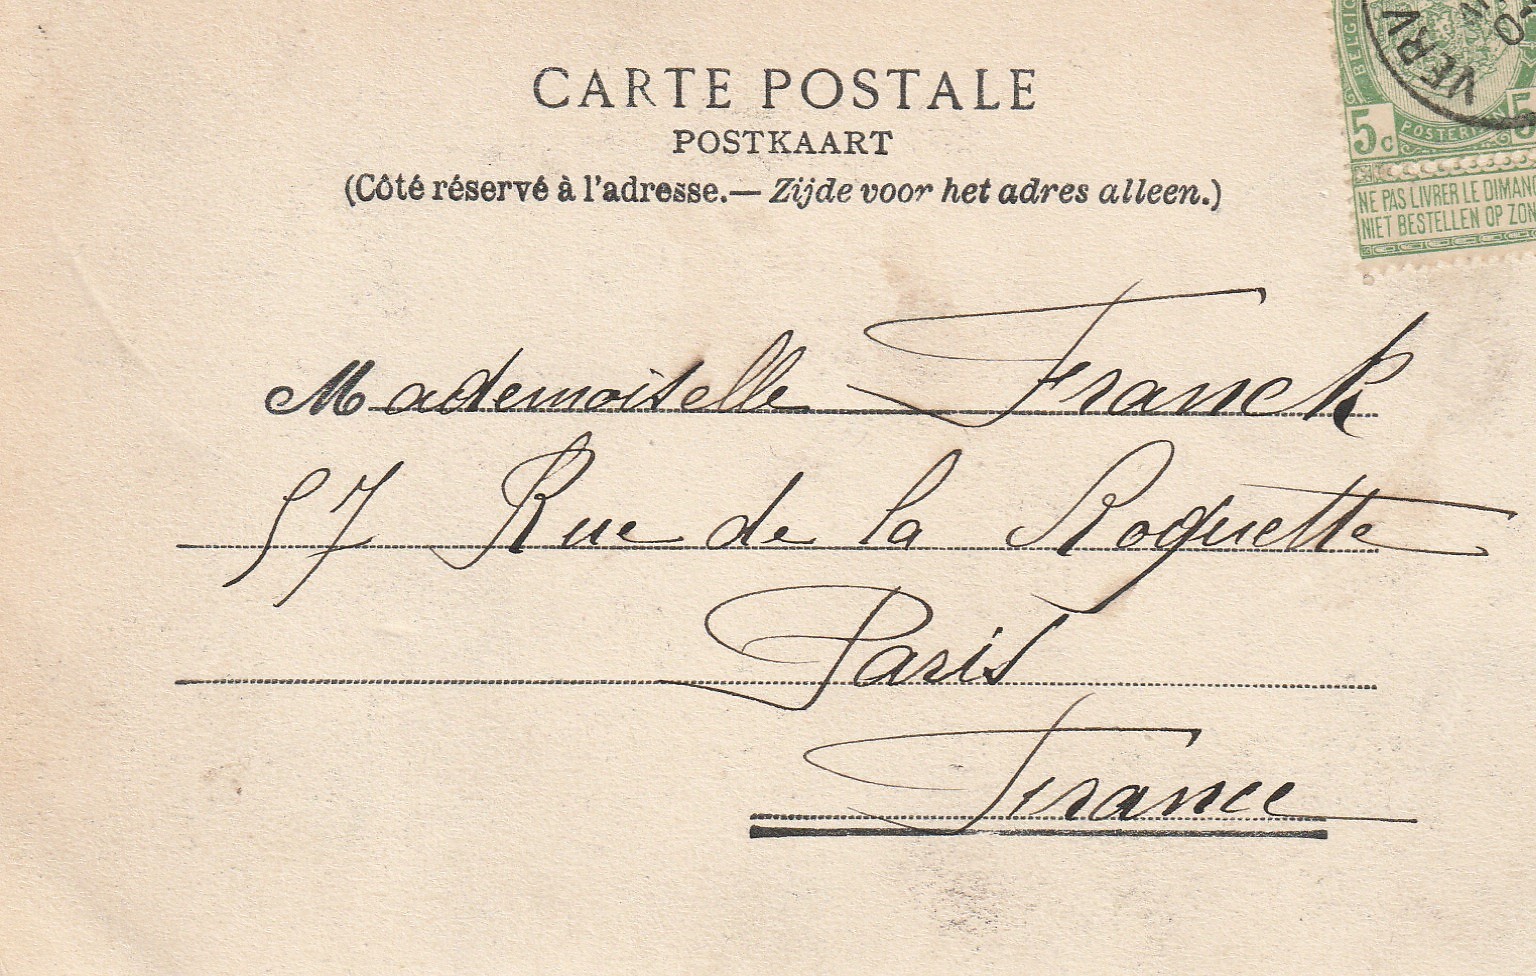 CARTE POSTALE
POSTKAART
(Côté réservé à l'adresse.— Zijde voor het adres alleen.)
BELGIQ
VERV
5c POSTERIJEN 5
NE PAS LIVRER LE DIMANC
NIET BESTELLEN OP ZON
Mademoiselle Franck
57 Rue de la Roquette
Paris
France